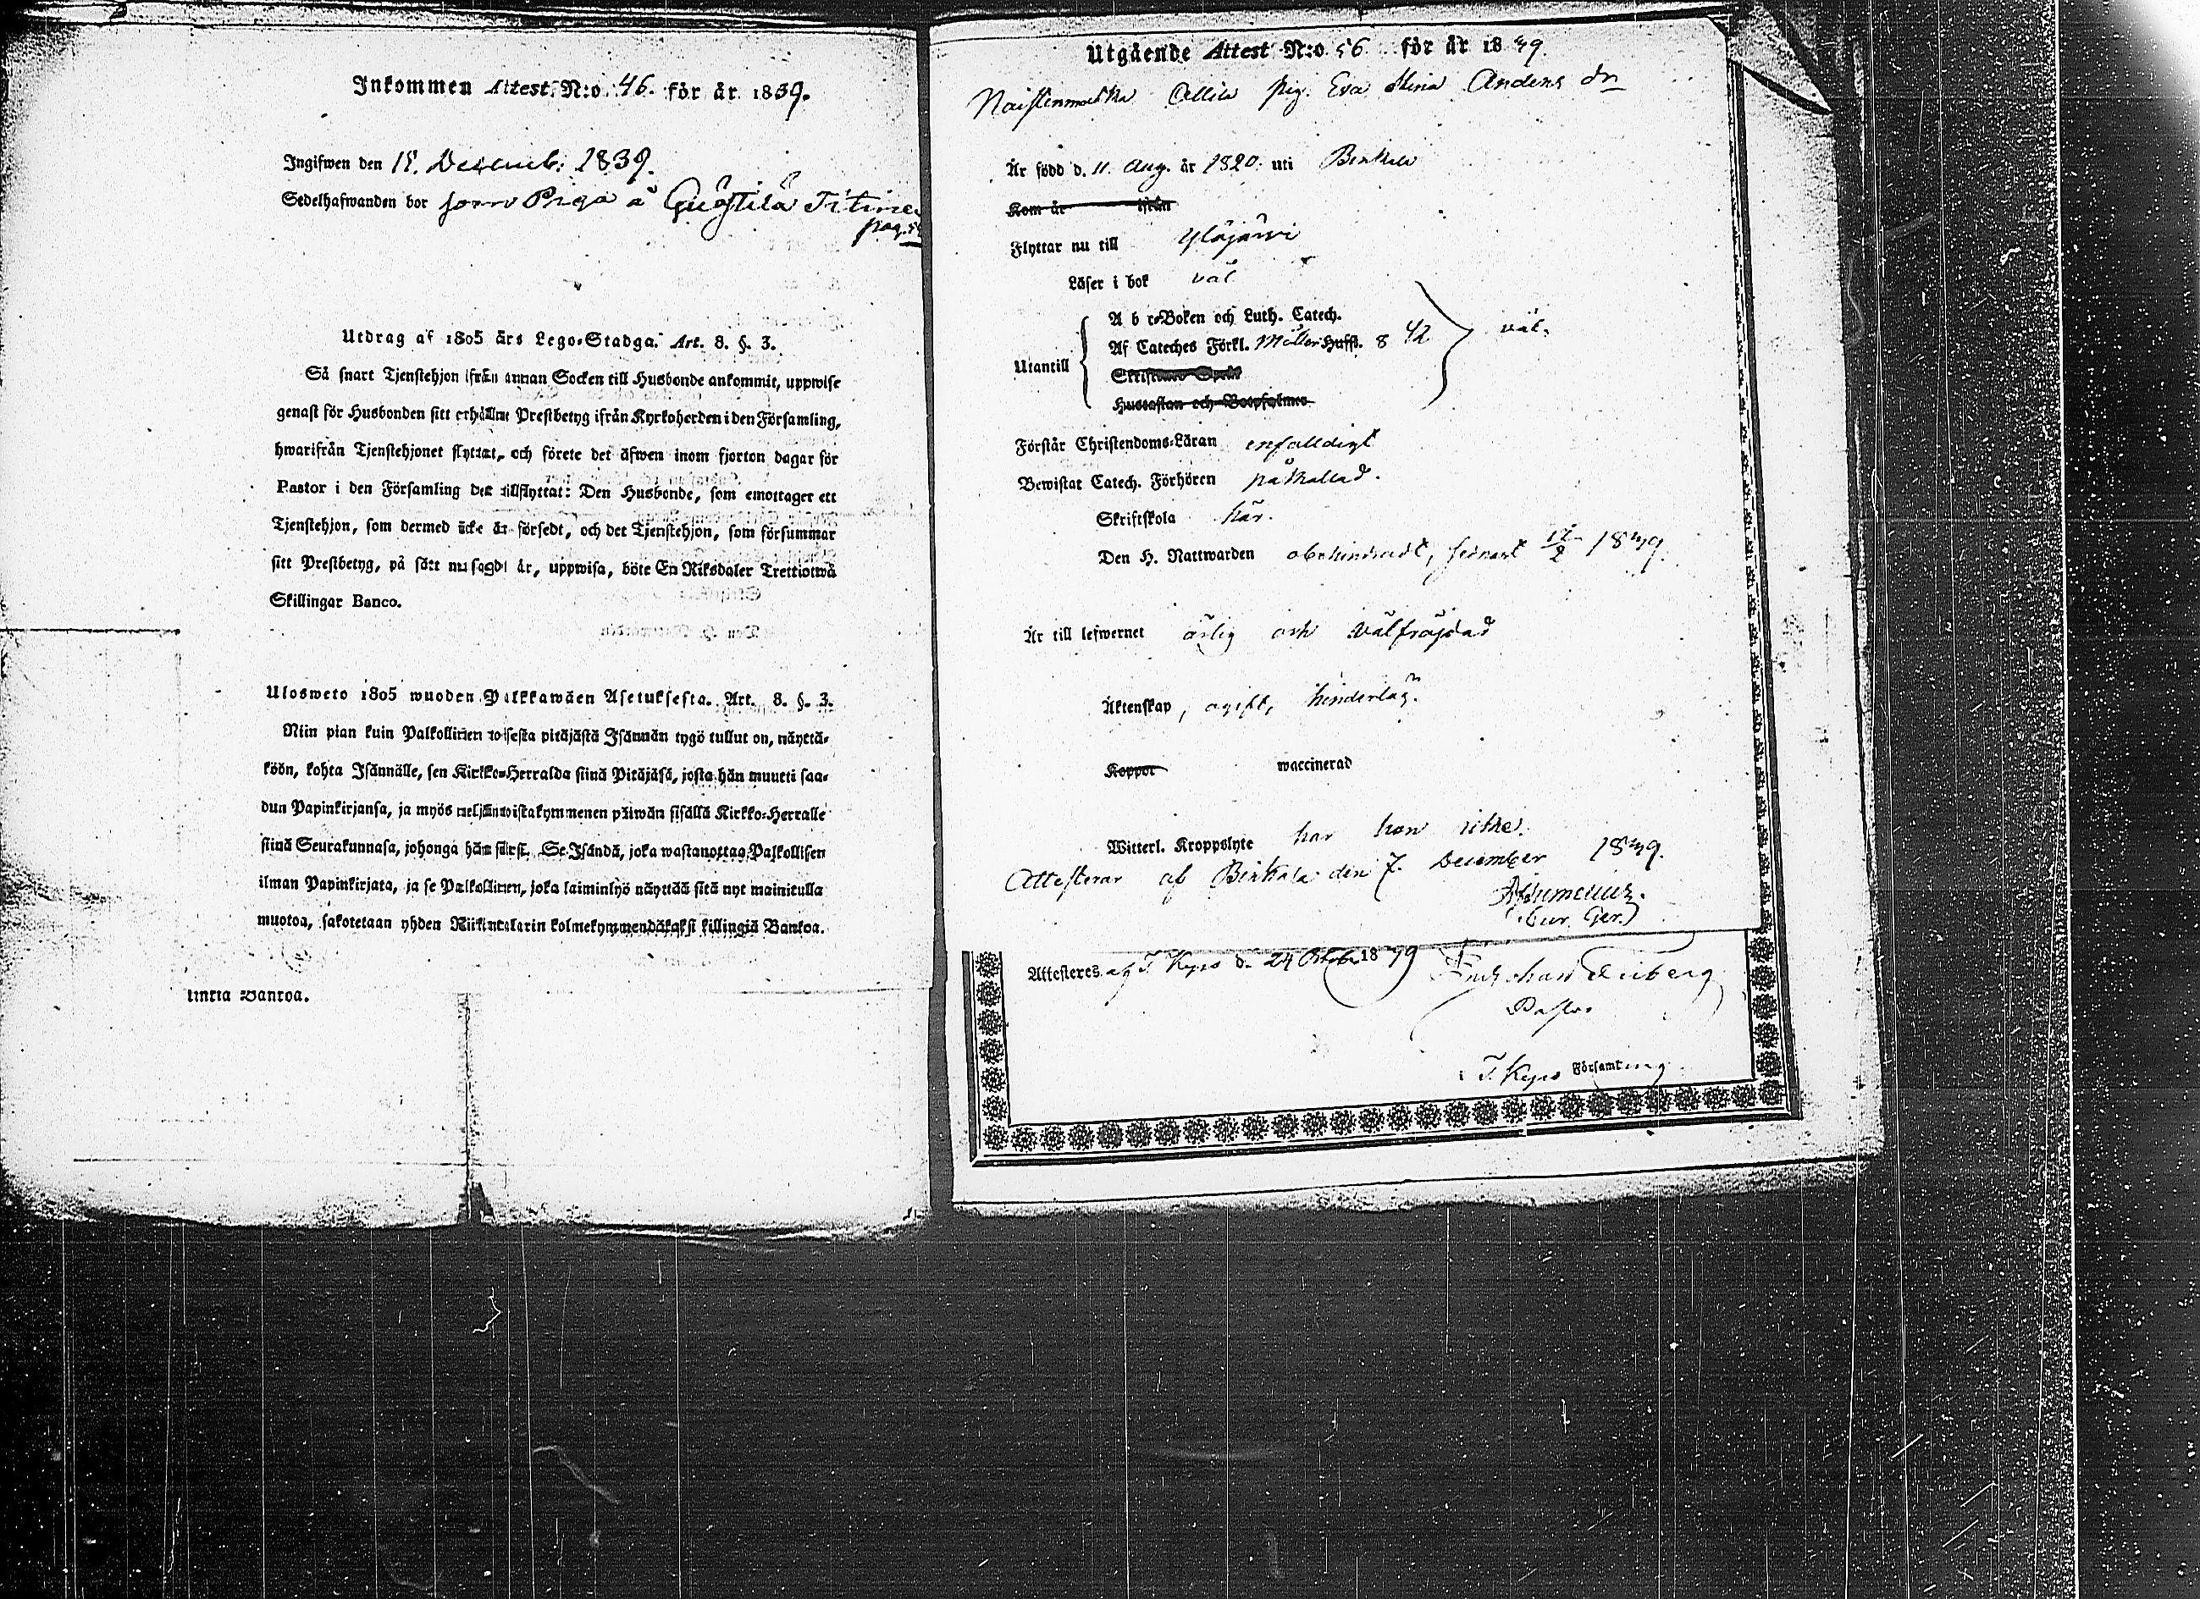 Inkommen Attest N:o 46. för år 1839.
Ingifwen den 15. Decemb: 1839.
Sedelhafwanden bor som Piga å
pag.
Utdrag af 1805 års Lego-Stadga. Art. 8. §. 3.
Så snart Tjenstehjon ifrån annan Socken till Husbonde ankommit, uppwise
genast för Husbonden sitt erhållne Prestbetyg ifrån Kyrkoherden i den Församling,
hwarifrån Tjenstehjonet flyttat, och förete det äfwen inom fjorton dagar för
Pastor i den Församling det tillflyttat: Den Husbonde, som emottager ett
Tjenstehjon, som dermed icke är försedt, och det Tjenstehjon, som försummar
sitt Prestbetyg, på sätt nu sagdt är, uppwisa, böte En Riksdaler Trettiotwå
Skillingar Banco.
Ulosweto 1805 wuoden Palkkawäen Asetuksesta. Art. 8. §. 3.
Niin pian kuin Palkollinen toisesta pitäjästä Isännän tygö tullut on, näyttä-
köön, kohta Isännälle, sen Kirkko-Herralda siinä Pitäjäsä, josta hän muutti saa-
dun Papinkirjansa, ja myös neljäntoistakymmenen päiwän sisällä Kirkko-Herralle
siinä Seurakunnasa, johonga hän siirsi. Se Isändä, joka wastanottaa Palkollisen
ilman Papinkirjata, ja se Palkollinen, joka laiminlyö näyttää sitä nyt mainitulla
muotoa, sakotetaan yhden Riikintalarin kolmekymmendäkaksi killingiä Bankoa.
Bankoa.
Utgående Attest N:o 56 för år 1839.
Naistenmatka Ollila pig. Eva Stina Anders dr
Är född d. 11. Aug. år 1820. uti Birkala
Kom år ifrån
Flyttar nu till Ylöjärwi
Läser i bok väl
A b c-Boken och Luth. Catech.
Af Cateches Förkl. Möller Hufst. 8 42 väl.
Utantill
Hustaflan och Botpsalmer
Förstår Christendoms-Läran enfaldigt
Bewistat Catech. Förhören påkallad.
Skriftskola här.
Den H. Nattwarden obehindradt, senast 1839.
Är till lefwernet ärlig och välfräjdad
Äktenskap, ogift, hinderlös.
Koppor waccinerad
Witterl. Kroppslyte har hon icke.
Attesterar af Birkala den 7. December 1839.
(Cur. Ger.)
Attesteres af T. Kyro d. 24 Octob. 1879
Pastor
T. Kyro Församling